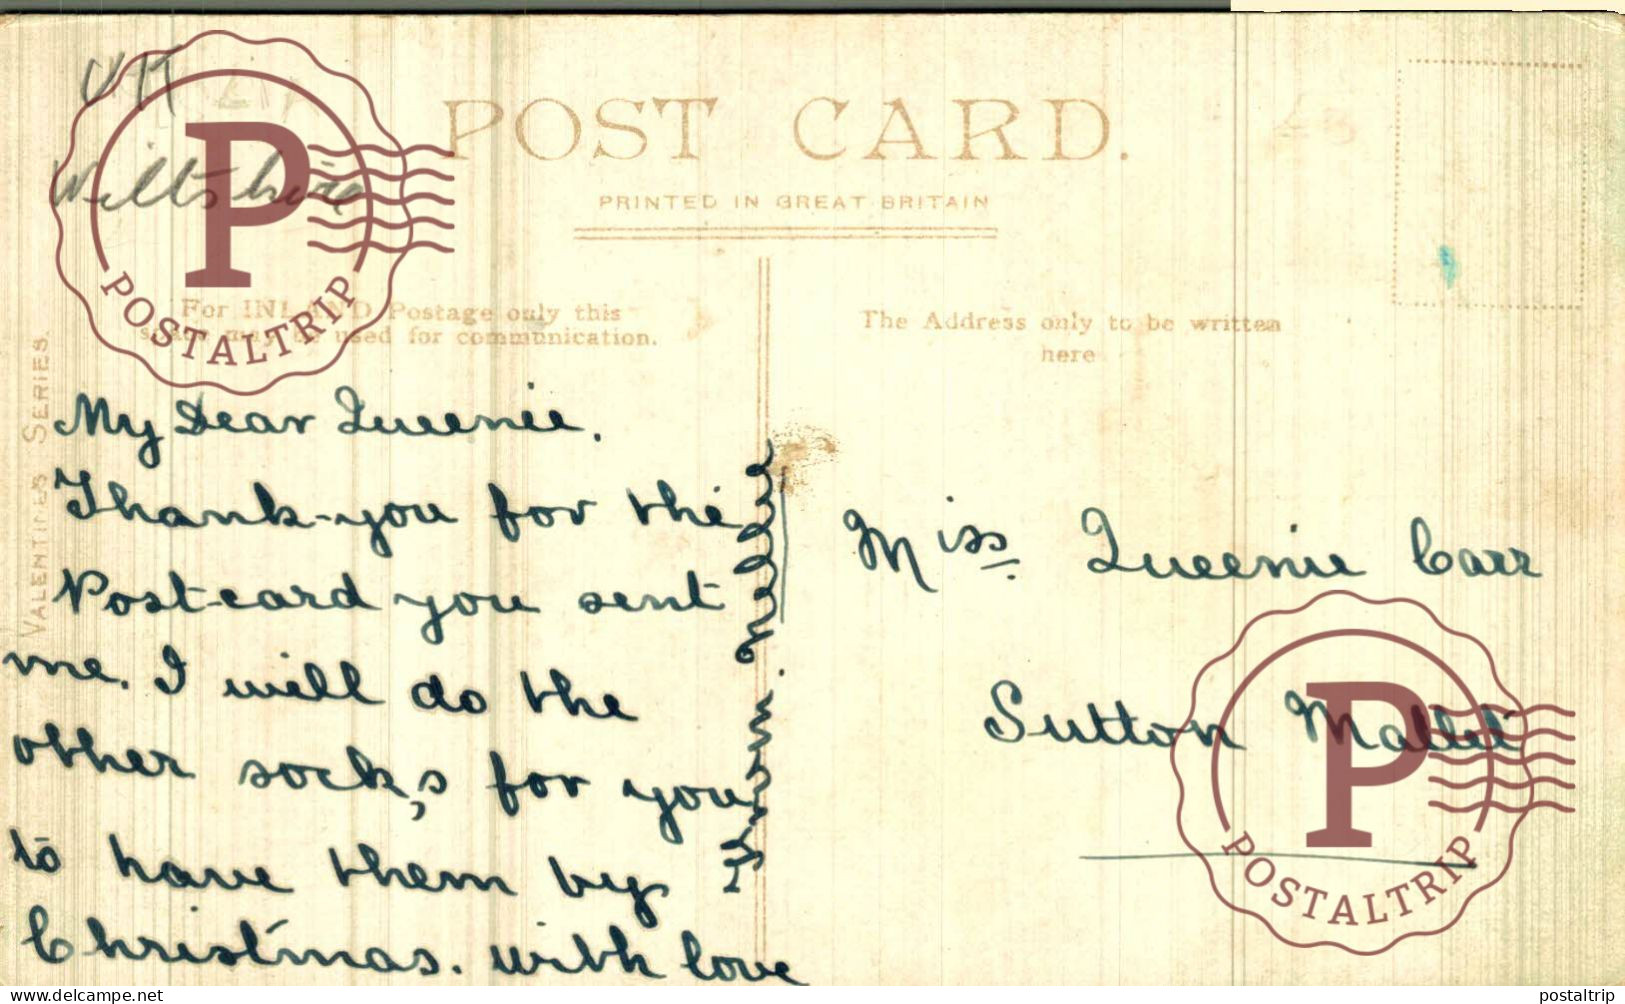 UK
Wiltshire
POST CARD.
PRINTED IN GREAT BRITAIN
For INLAND Postage only this
space may be used for communication.
The Address only to be written
here
VALENTINES SERIES.
My Dear Queenie.
Thank-you for the
Post-card you sent
me. I will do the
other socks, for you
to have them by
Christmas. with love
from Nellie
Miss Queenie Carr
Sutton Mallet
P
POSTALTRIP
P
POSTALTRIP
www.delcampe.net
postaltrip